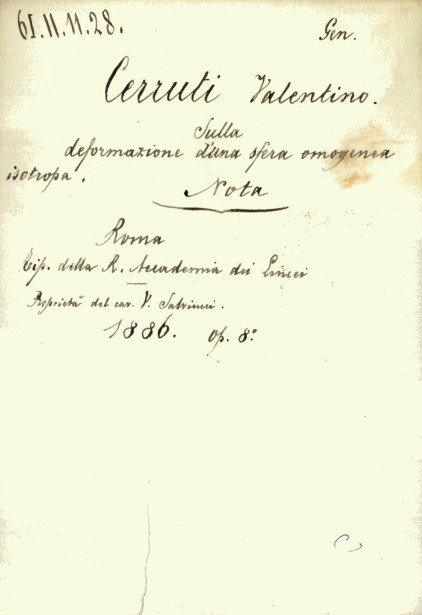 61.11.11.28.
Gen.
Cerruti Valentino.
Sulla
deformazione d'una sfera omogenea
isotropa.
Nota
Roma
Tip. della R. Accademia dei Lincei
Proprietà del cav. V. Salviucci.
1886. Op. 8°